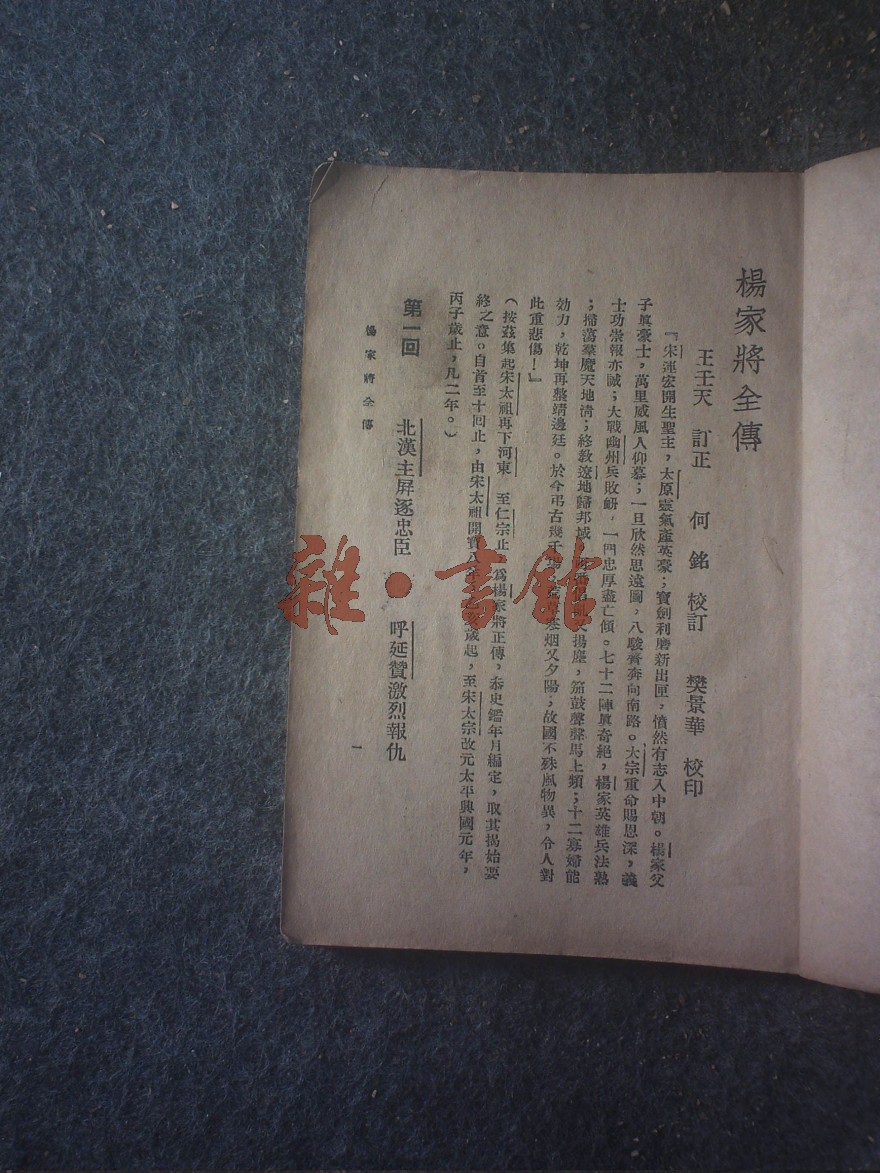 楊家將全傳
王壬天 訂正 何銘 校訂 樊景華 校印
『宋運宏開生聖主，太原靈氣產英豪；寶劍利磨新出匣，憤然有志入中朝。楊家父
子眞豪士，萬里威風人仰慕；一旦欣然思遠圖，八駿齊奔向南路。太宗重命賜恩深，義
士功崇報亦誠；大戰幽州兵敗衂，一門忠厚盡亡傾。七十二陣眞奇絕，楊家英雄兵法熟
；掃蕩羣魔天地淸；終敎遼地歸邦域 揚塵，笳鼓聲聲馬上頻；十二寡婦能
効力，乾坤再整靖邊廷。於今弔古幾千 烟又夕陽；故國不殊風物異，令人對
此重悲傷！』
（按茲集起宋太祖再下河東 至仁宗止， 爲楊家將正傳，叅史鑑年月編定，取其揭始要
終之意。自首至十回止，由宋太祖開寶 歲起，至宋太宗改元太平興國元年，
丙子歲止，凡二年。）
第一回 北漢主屛逐忠臣 呼延贊激烈報仇
楊家將全傳
一
雜·書舘